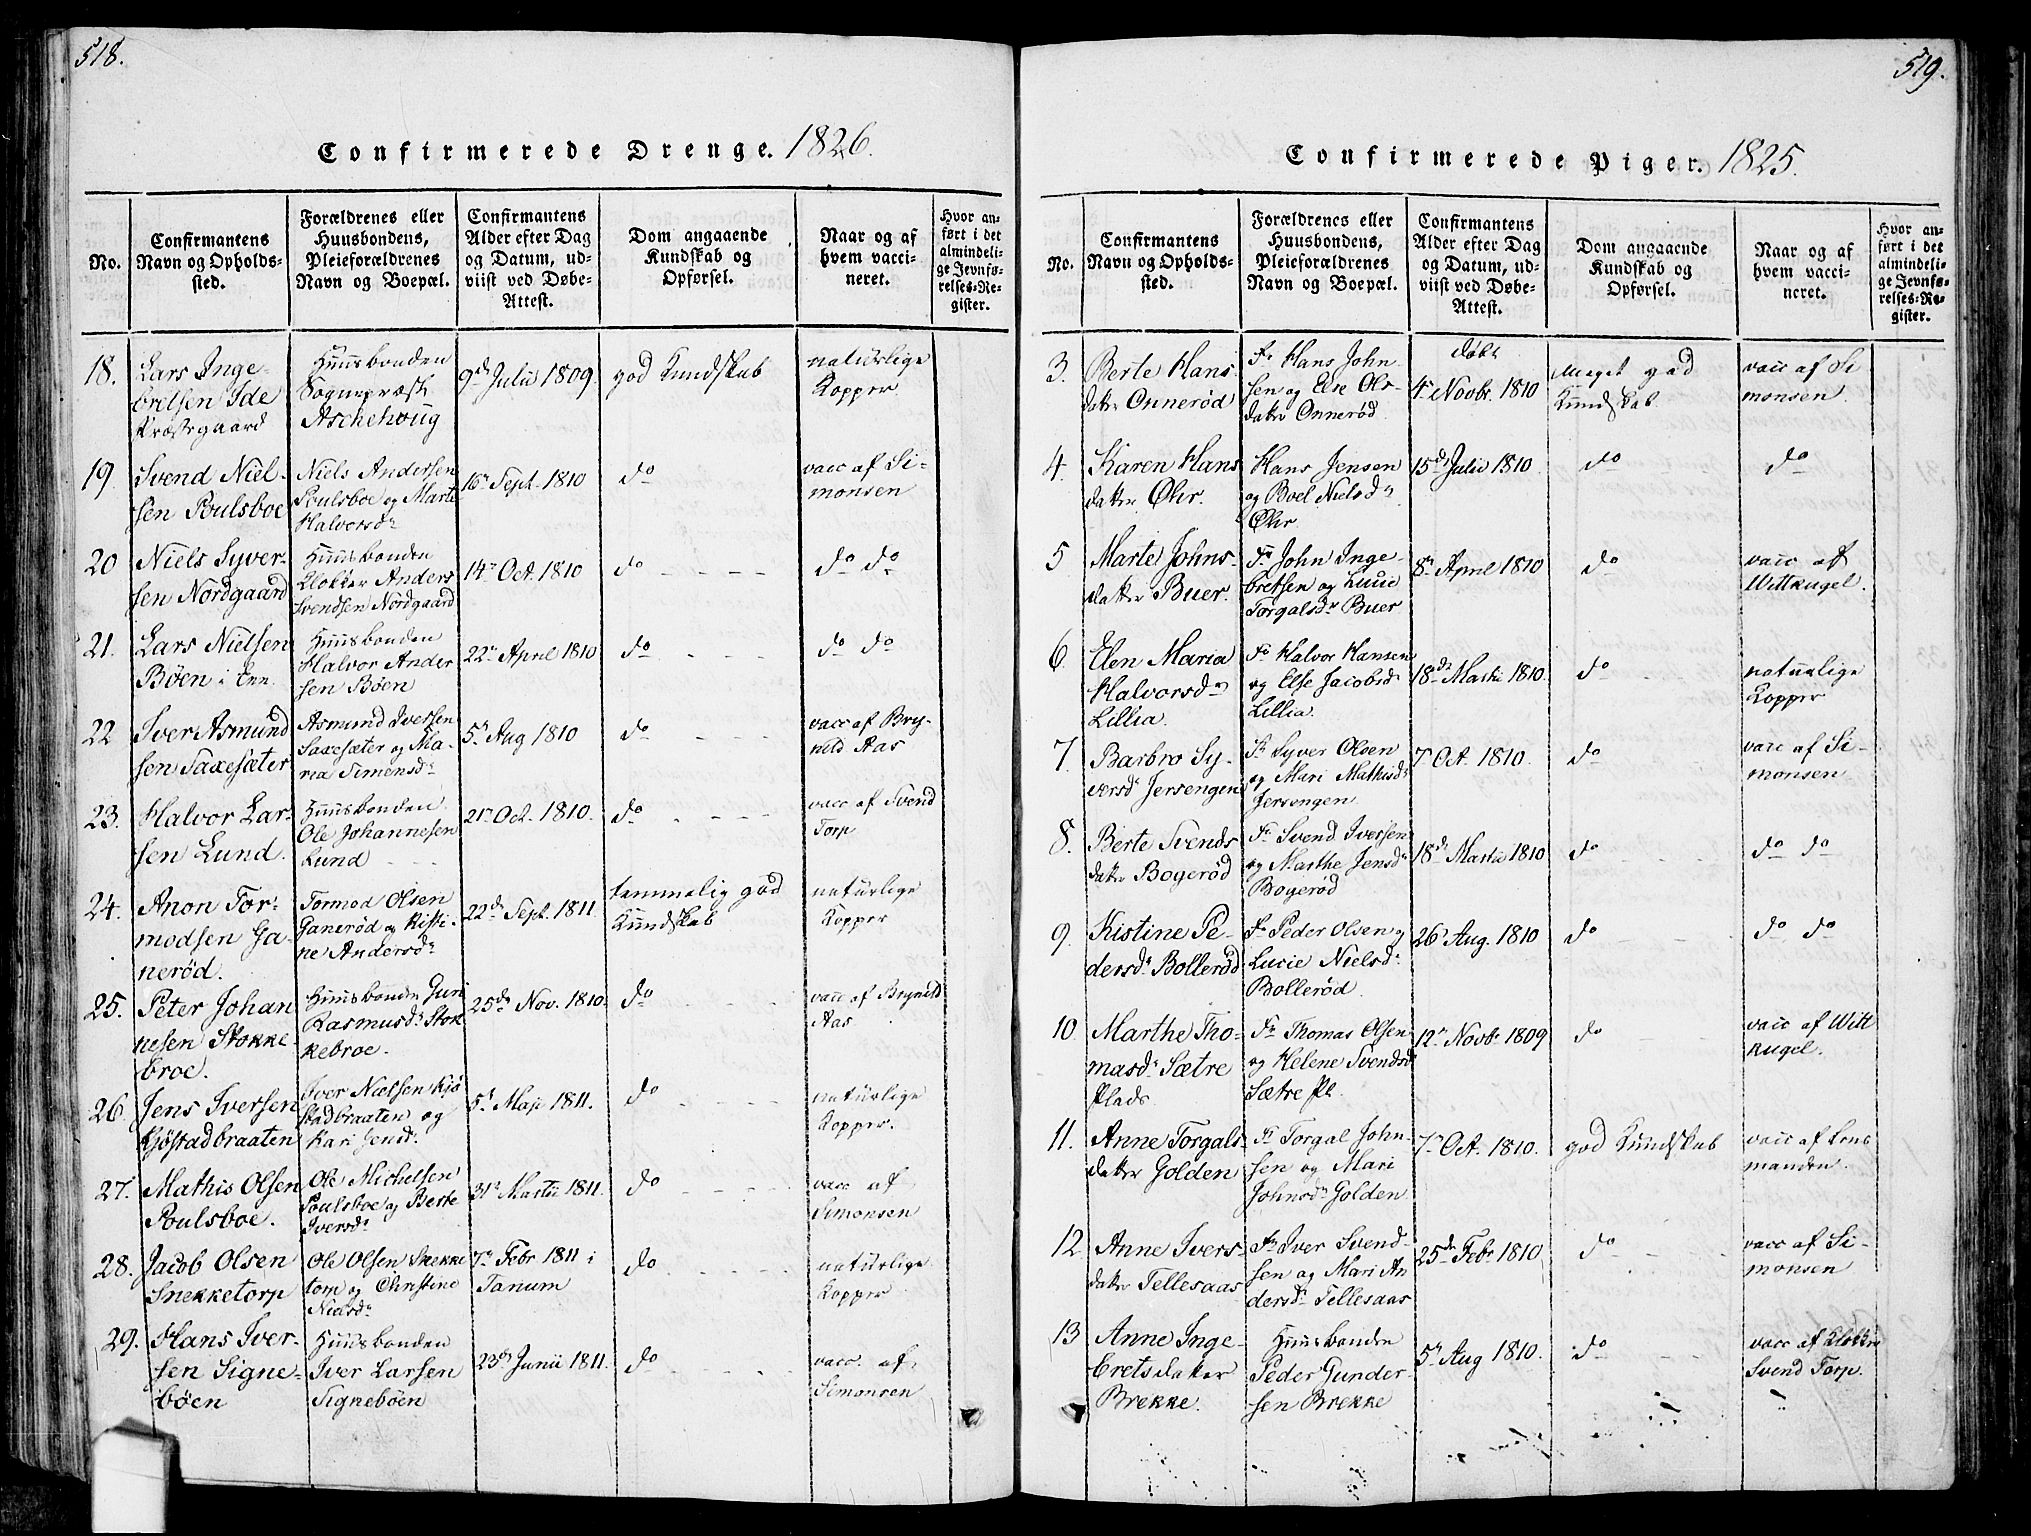 518.
Confirmerede Drenge. 1826.
No.
Confirmantens
Navn og Opholds-
sted.
Forældrenes eller
Huusbondens,
Pleieforældrenes
Navn og Boepæl.
Confirmantens
Alder efter Dag
og Datum, ud-
viist ved Døbe-
Attest.
Dom angaaende
Kundskab og
Opførsel.
Naar og af
hvem vacci-
neret.
Hvor an-
ført i det
almindeli-
ge Jevnfø-
relses-Re-
gister.
18.
Lars Inge-
bretsen Ide
Præstegaard
Huusbonden
Sognepræst
Aschehoug
9de Julii 1809.
god Kundskab
naturlige
Kopper
19.
Svend Niel-
sen Poulsboe
Niels Andersen
Poulsboe og Marte
Halvorsdr
16de Sept. 1810
do
vacc af Si-
monsen
20
Niels Syver-
sen Nordgaard
Huusbonden
Klokker Anders
Svendsen Nordgaard
14de Oct. 1810
do
do do
21.
Lars Nielsen
Bøen i Enn.
Huusbonden
Halvor Ander
sen Bøen
22de April 1810
do
do do
22
Iver Asmund
sen Saxesæter
Asmund Iversen
Saxesæter og Ma-
ria Simensdr
5te Aug 1810
do
vacc af Bry-
nild Aas
23.
Halvor Lar-
sen Lund.
Huusbonden
Ole Johannesen
Lund
21de Oct. 1810.
do
vacc af Svend
Torp
24.
Anon Tor-
modsen Ga-
nerød.
Tormod Olsen
Ganerød og Kisti-
ne Andersdr
22de Sept. 1811.
temmelig god
Kundskab
naturlige
Kopper
25.
Peter Johan
nesen Stokke-
broe.
Huusbonde Guri
Rasmusdr Stok
kebroe.
25de Nov. 1810.
do
vacc af Brynild
Aas
26.
Jens Iversen
Kjøstadbraaten
Iver Nielsen Kjø
stadbraaten og
Kari Jensdr
5te Maji 1811.
do
naturlige
Kopper.
27.
Mathis Olsen
Poulsboe.
Ole Michelsen
Poulsboe og Berte
Iversdr
31te Martii 1811.
do
vacc af
Simonsen
28.
Jacob Olsen
Snekketorp
Ole Olsen Snekke
torp og Christine
Nielsdr
7de Febr 1811 i
Tanum
do
naturlige
Kopper
29.
Hans Iver-
sen Signe-
bøen
Huusbonden
Iver Larsen
Signebøen
23de Junii 1811.
do
vacc. af
Simonsen
519.
Confirmerede Piger. 1825.
No.
Confirmantens
Navn og Opholds-
sted.
Forældrenes eller
Huusbondens,
Pleieforældrenes
Navn og Boepæl.
Confirmantens
Alder efter Dag
og Datum, ud-
viist ved Døbe-
Attest.
Dom angaaende
Kundskab og
Opførsel.
Naar og af
hvem vacci-
neret.
Hvor an-
ført i det
almindeli-
ge Jevnfø-
relses-Re-
gister.
3.
Berte Hans
datter Onnerød
Fr Hans John
sen og Else Ols-
datter Onnerød.
døbt
4de Novbr. 1810
meget god
Kundskab.
vacc af Si
monsen.
4.
Karen Hans
datter Øhr.
Hans Jensen
og Boel Nielsdr
Øhr.
15de Julii 1810.
do
do
5
Marte Johns-
datter Buer.
Fr John Inge-
bretsen og Lucie
Torgalsdr Buer
8de April 1810
do
vacc af
Wittkugel.
6
Elen Maria
Halvorsdr
Lillia.
Fr Halvor Hansen
og Else Jacobsdr
Lillia.
18de Martii 1810.
do
naturlige
Kopper
7.
Barbro Sy-
versdr Jersengen
Fr Syver Olsen
og Mari Mathisdr
Jersengen.
7 Oct. 1810.
do
vacc af Si-
monsen.
8.
Berte Svends
datter Bogerød
Fr Svend Iversen
og Marthe Jensdr
Bogerød
18de Martii 1810
do
do do
9.
Kistine Pe-
dersdr Bollerød
Fr Peder Olsen og
Lucie Nielsdr
Bollerød.
26de Aug. 1810
do
do do
10
Marthe Tho-
masdr Sætre
Plads.
Fr Thomas Olsen
og Helene Svendsdr
Sætre Pl.
12te Novbr 1809
do
vacc af Witt
kugel.
11.
Anne Torgals
datter Golden
Fr Torgal John-
sen og Mari
Johnsdr Golden.
7de Oct. 1810.
god Kundskab
vacc af Lens
manden.
12
Anne Ivers-
datter Tellesaas
Fr Iver Svend-
sen og Mari An
dersdr Tellesaas
25de Febr 1810
do
vacc af Si-
monsen
13
Anne Inge-
bretsdatter
Brekke.
Huusbonde
Peder Gunder-
sen Brekke
5te Aug 1810.
do
vacc af Klokker
Svend Torp.